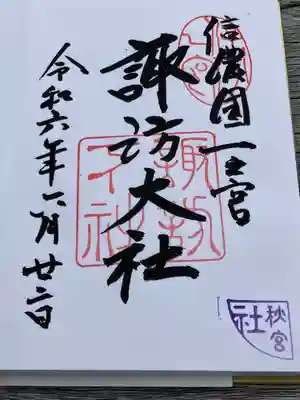 信濃國一之宮
諏訪大社
令和六年一月廿二日
諏訪大社
秋宮
社